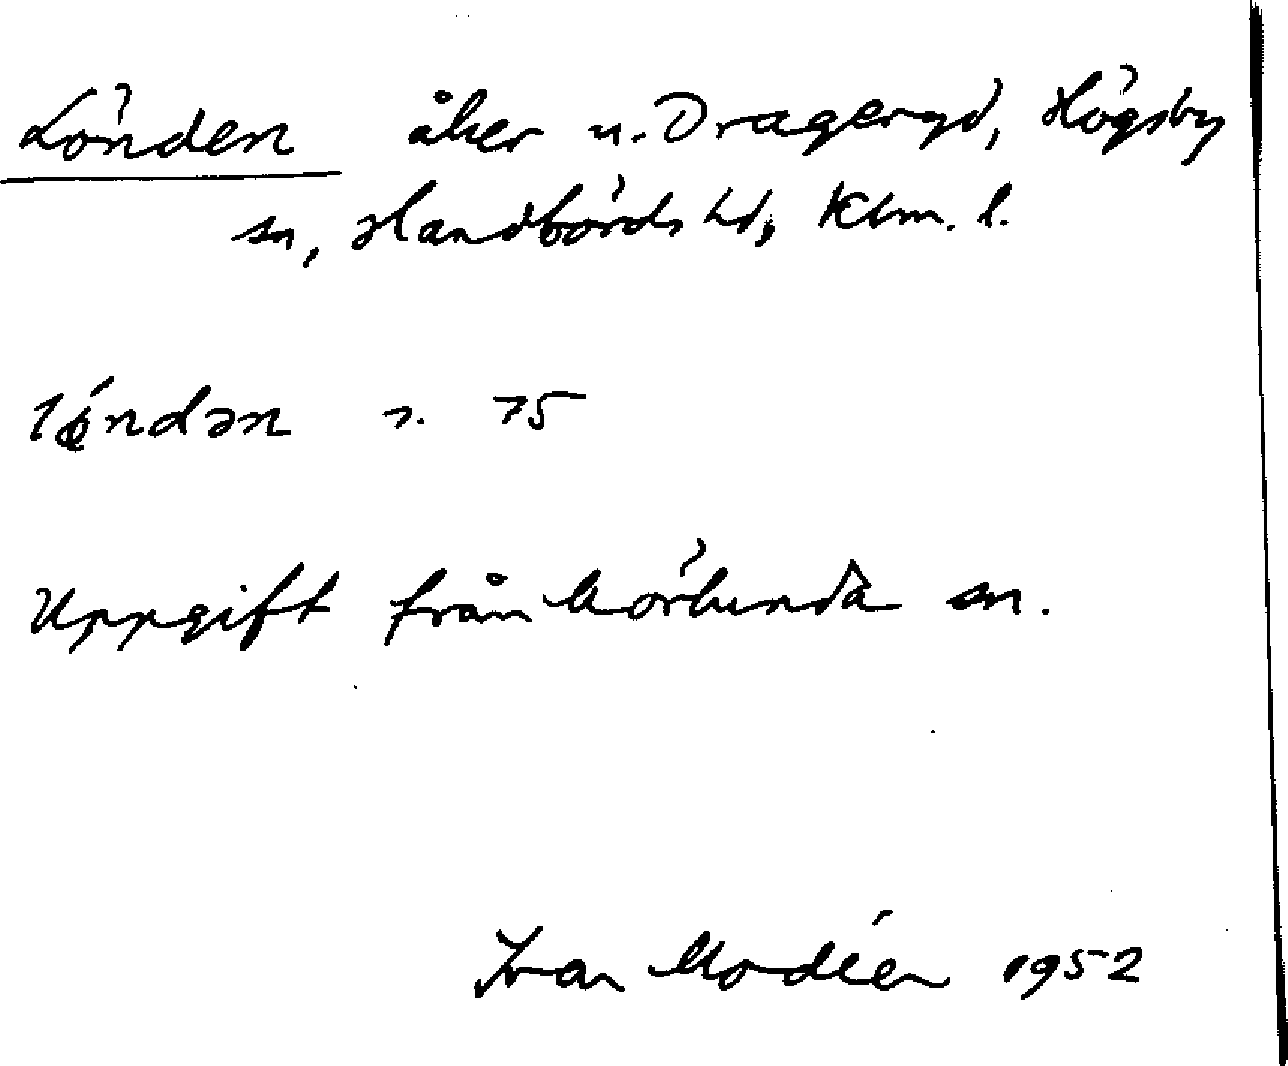 Lönden åker u. Drageryd, Högsby
sn, Handbörds hd, Klm. l.
lǿndən r. 75
Uppgift från Mörlunda sn.
Ivar Modéer 1952